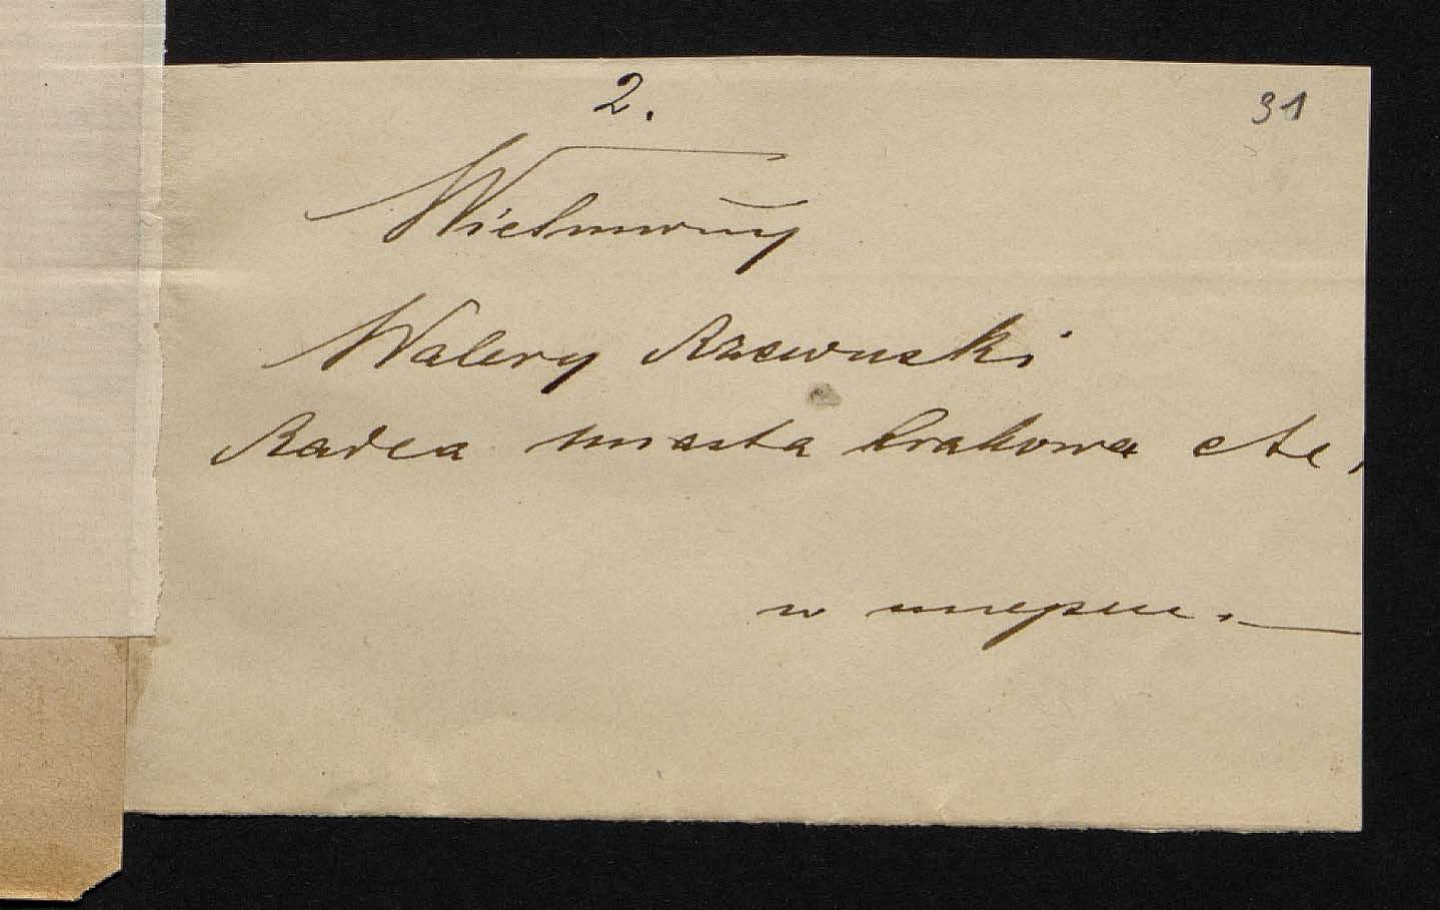 2.
31
Wielmożny
Walery Rzewuski
Radca miasta Krakowa etc.
w miejscu.